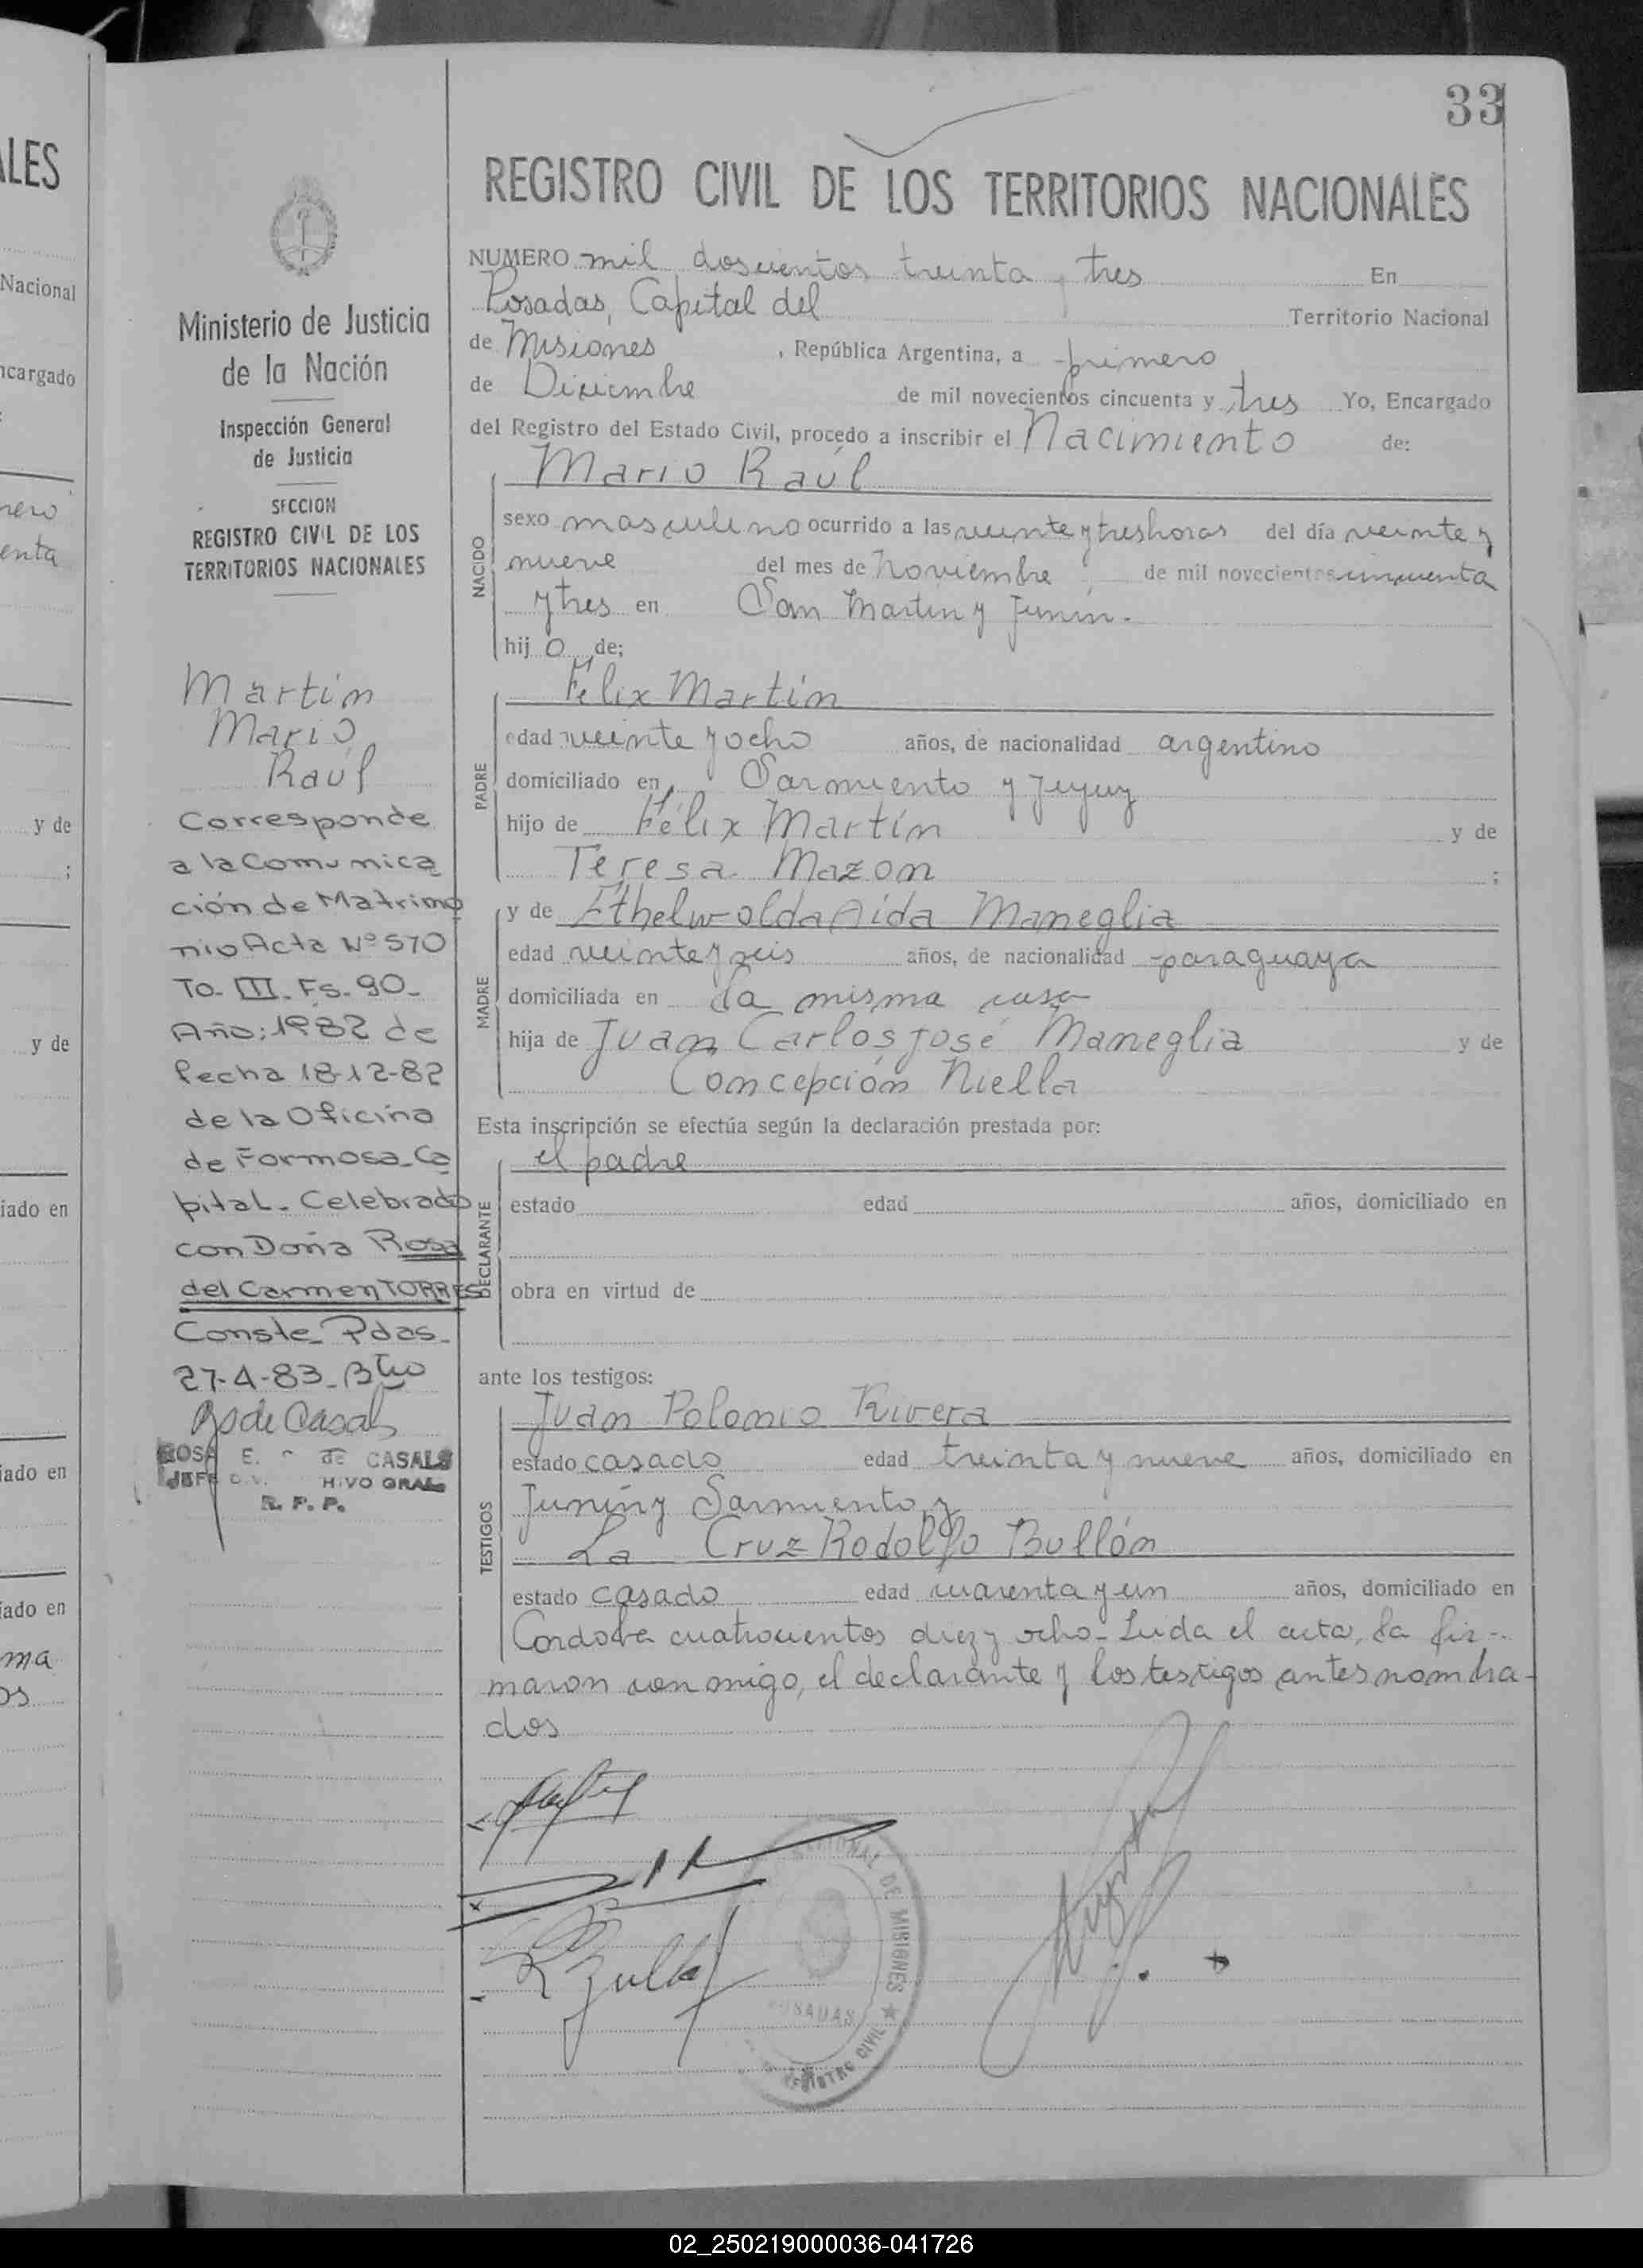 33
REGISTRO CIVIL DE LOS TERRITORIOS NACIONALES
NUMERO mil doscientos treinta y tres En
Posadas, Capital del Territorio Nacional
de Misiones , República Argentina, a primero
de Diciembre de mil novecientos cincuenta y tres Yo, Encargado
del Registro del Estado Civil, procedo a inscribir el Nacimiento de:
NACIDO
Mario Raúl
sexo masculino ocurrido a las veinte y tres horas del día veinte y
nueve del mes de Noviembre de mil novecientos cincuenta
y tres en San Martín y Junín.
hij o de;
PADRE
Félix Martín
edad veinte y ocho años, de nacionalidad argentino
domiciliado en Sarmiento y Jujuy
hijo de Félix Martín y de
Teresa Mazon ;
MADRE
y de Ethelwolda Aida Maneglia
edad veinte y seis años, de nacionalidad paraguaya
domiciliada en la misma casa
hija de Juan Carlos José Maneglia y de
Concepción Niella
Esta inscripción se efectúa según la declaración prestada por:
DECLARANTE
el padre
estado edad años, domiciliado en
obra en virtud de
ante los testigos:
TESTIGOS
Juan Polonio Rivera
estado casado edad treinta y nueve años, domiciliado en
Junín y Sarmiento y
La Cruz Rodolfo Bullón
estado casado edad cuarenta y un años, domiciliado en
Cordoba cuatrocientos diez y ocho - Leida el acta, la fir-
maron con migo, el declarante y los testigos antes nombra-
dos
Ministerio de Justicia
de la Nación
Inspección General
de Justicia
SECCION
REGISTRO CIVIL DE LOS
TERRITORIOS NACIONALES
Martín
Mario
Raúl
Corresponde
a la Comunica
ción de Matrimo
nio Acta Nº 570
To. III. Fs. 90.
Año: 1982 de
fecha 18-12-82
de la Oficina
de Formosa Ca
pital. Celebrado
con Doña Rosa
del Carmen TORRES
Conste Pdas.
27-4-83
ROSA E. de CASALS
JEFE HIVO GRAL
R. P. P.
DE MISIONES
POSADAS
REGISTRO CIVIL
ALES
Nacional
ncargado
nero
enta
y de
;
y de
iado en
iado en
iado en
ma
os
02_250219000036-041726